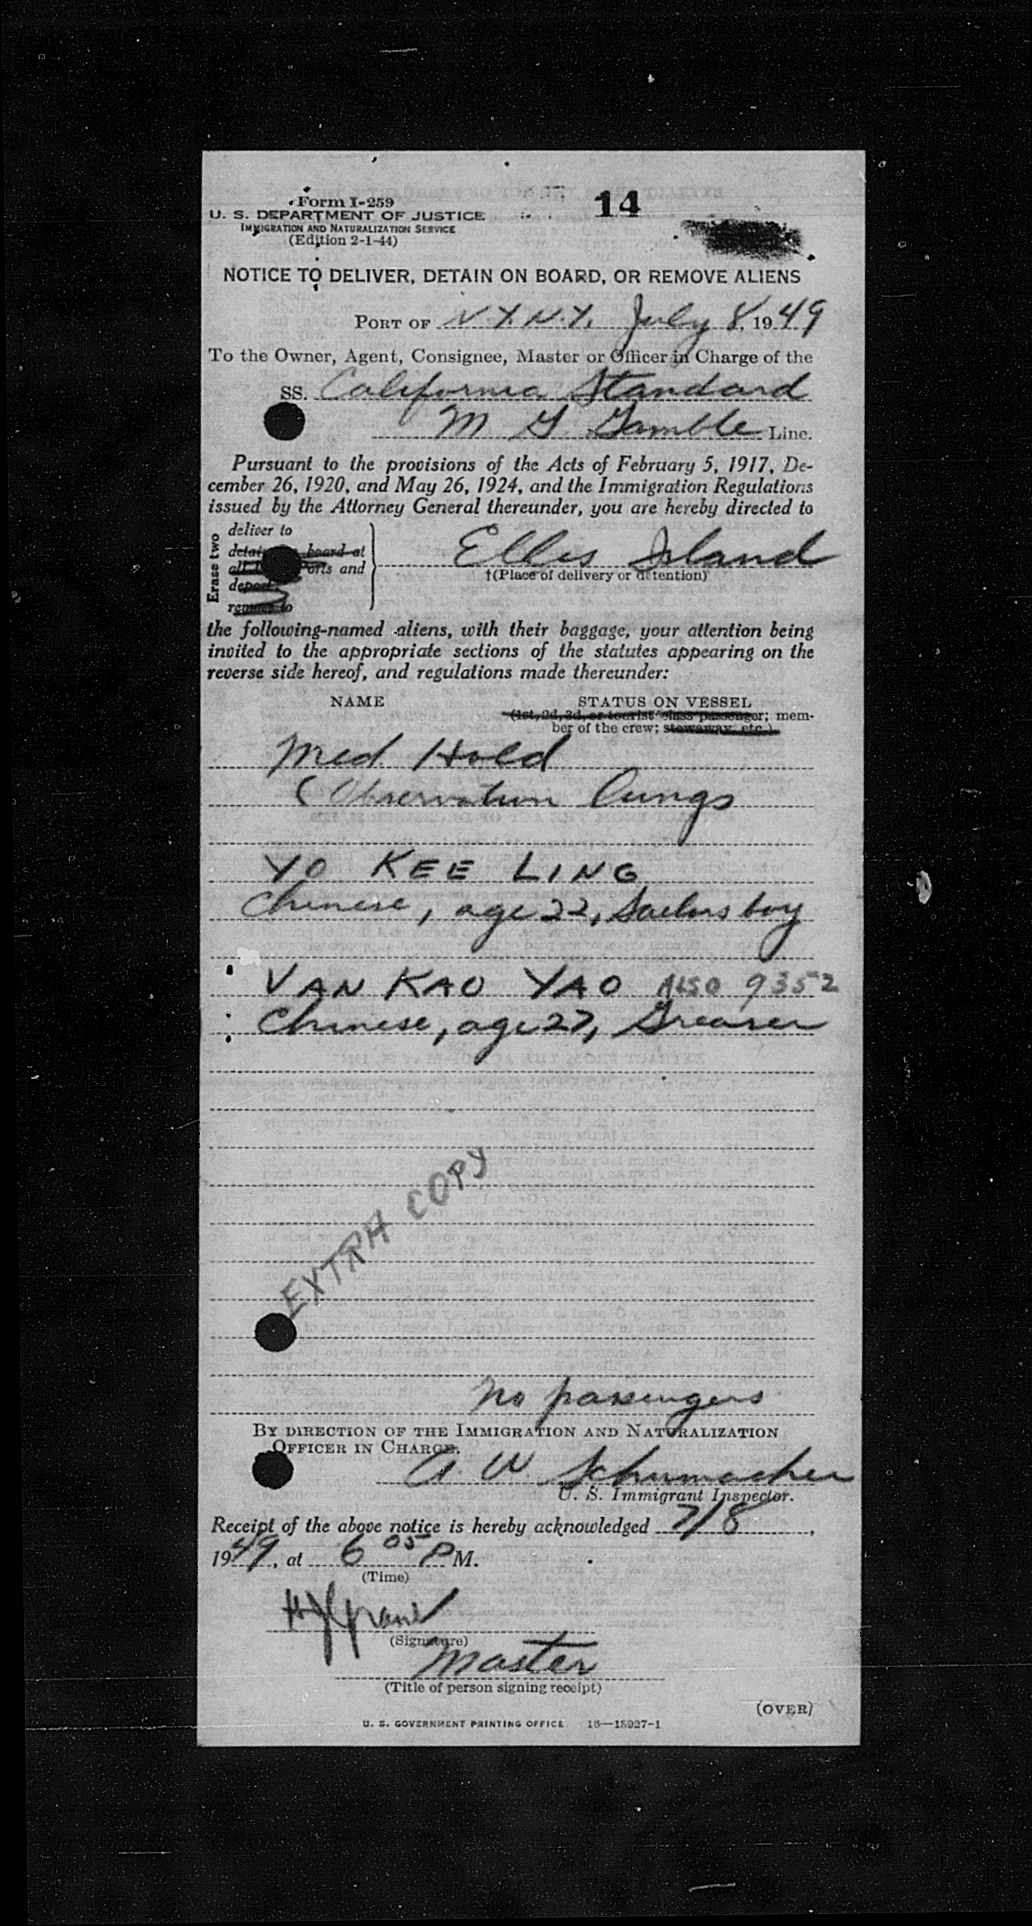 Form I-259
14
U. S. DEPARTMENT OF JUSTICE
IMMIGRATION AND NATURALIZATION SERVICE
(Edition 2-1-44)
NOTICE TO DELIVER, DETAIN ON BOARD, OR REMOVE ALIENS
PORT OF N.Y.N.Y. July 8, 1949
To the Owner, Agent, Consignee, Master or Officer in Charge of the
SS. California Standard
M G Gamble Line.
Pursuant to the provisions of the Acts of February 5, 1917, De-
cember 26, 1920, and May 26, 1924, and the Immigration Regulations
issued by the Attorney General thereunder, you are hereby directed to
Erase two
deliver to
board at
and
Ellis Island
†(Place of delivery or detention)
remove to
the following-named aliens, with their baggage, your attention being
invited to the appropriate sections of the statutes appearing on the
reverse side hereof, and regulations made thereunder:
NAME STATUS ON VESSEL
(1st, 2d, 3d, or tourist class passenger; mem-
ber of the crew; stowaway, etc.)
Med. Hold
(Observation lungs
YO KEE LING
Chinese, age 22, Sailors boy
VAN KAO YAO ALSO 9352
Chinese, age 27, Greaser
EXTRA COPY
No passengers
BY DIRECTION OF THE IMMIGRATION AND NATURALIZATION
OFFICER IN CHARGE.
A W Schumacher
U. S. Immigrant Inspector.
Receipt of the above notice is hereby acknowledged 7/8,
1949, at 6 05 P M.
(Time)
(Signature)
Master
(Title of person signing receipt)
(OVER)
U. S. GOVERNMENT PRINTING OFFICE 16—18927-1